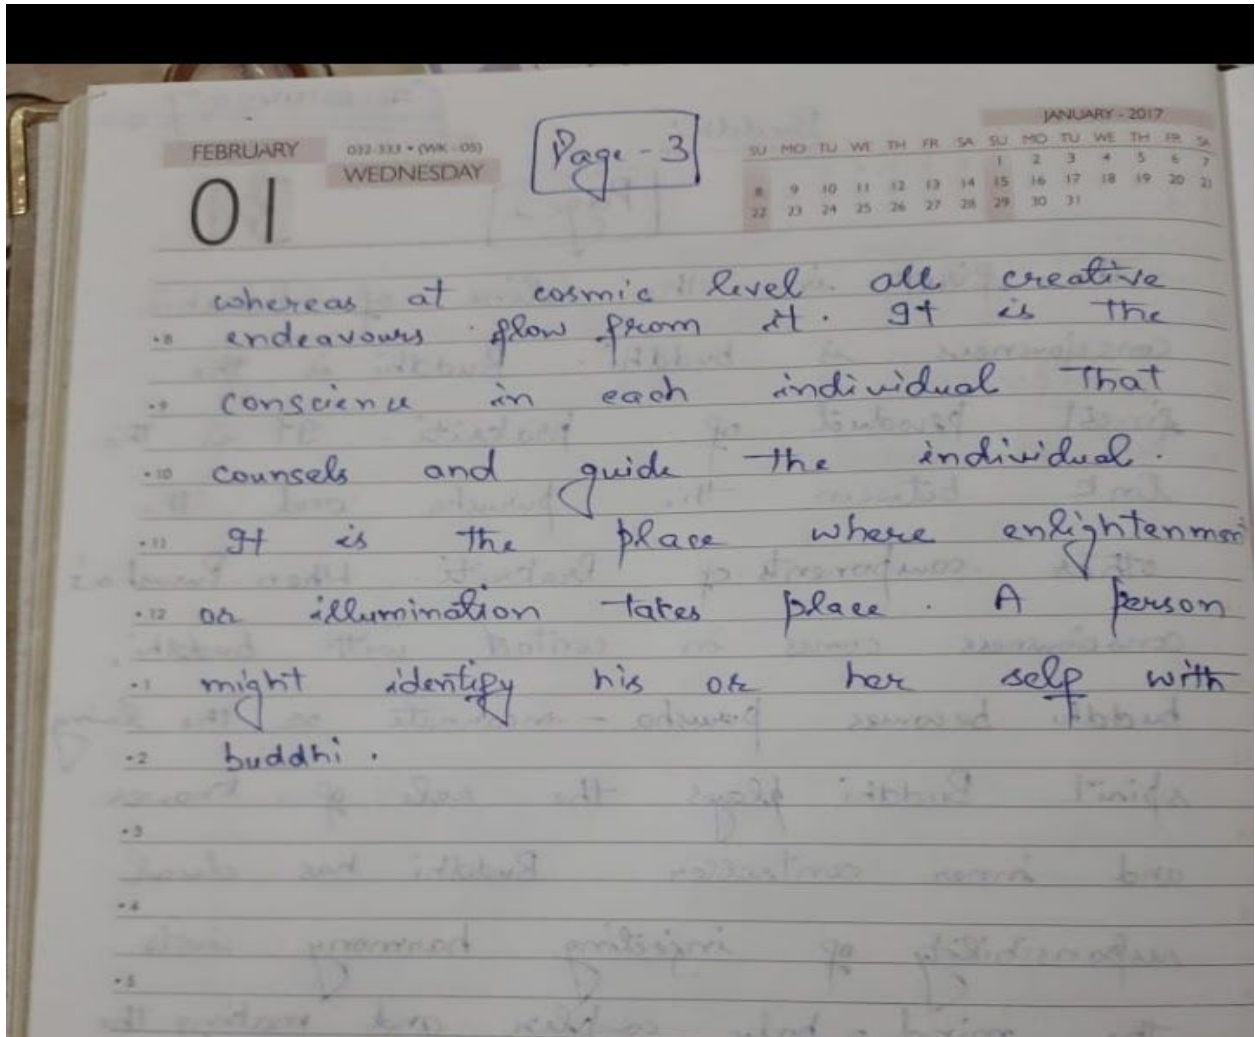 FEBRUARY
01
032-333 • (WK - 05)
WEDNESDAY
Page - 3
JANUARY - 2017
SU MO TU WE TH FR SA SU MO TU WE TH FR SA
1 2 3 4 5 6 7
8 9 10 11 12 13 14 15 16 17 18 19 20 21
22 23 24 25 26 27 28 29 30 31
whereas at cosmic level all creative
•8 endeavours flow from it. It is the
•9 conscience in each individual that
•10 counsels and guide the individual.
•11 It is the place where enlightenmen
•12 or illumination takes place. A person
•1 might identify his or her self with
•2 buddhi.
•3
•4
•5